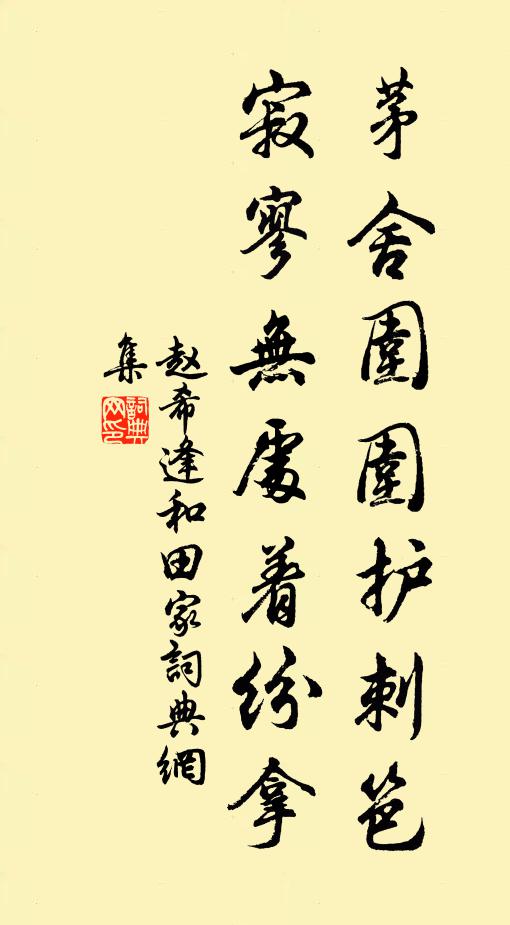 茅舍圍圍护刺笆
寂寥無處着纷拿
赵希逢和田家詞典網
集
詞典網印